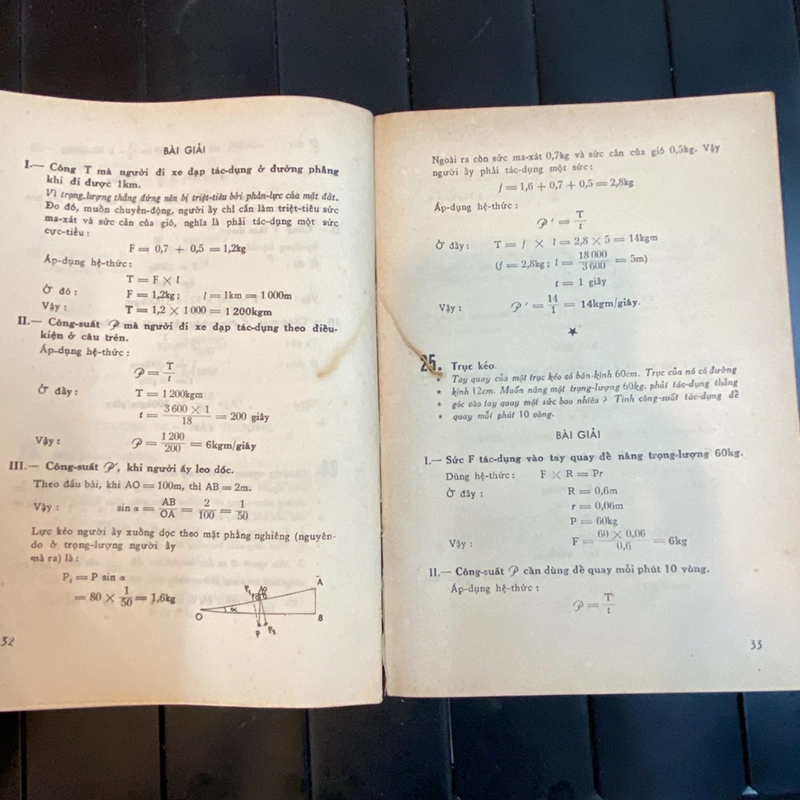 BÀI GIẢI
I.— Công T mà người đi xe đạp tác-dụng ở đường phẳng
khi đi được 1km.
Vì trọng-lượng thẳng đứng nên bị triệt-tiêu bởi phản-lực của mặt đất.
Do đó, muốn chuyển-động, người ấy chỉ cần làm triệt-tiêu sức
ma-xát và sức cản của gió, nghĩa là phải tác-dụng một sức
cực-tiểu :
F = 0,7 + 0,5 = 1,2kg
Áp-dụng hệ-thức :
T = F × l
Ở đó : F = 1,2kg ; l = 1km = 1 000m
Vậy : T = 1,2 × 1 000 = 1 200kgm
II.— Công-suất 𝒫 mà người đi xe đạp tác-dụng theo điều-
kiện ở câu trên.
Áp-dụng hệ-thức :
𝒫 = T/t
Ở đây : T = 1 200kgm
t = 3 600 × 1/18 = 200 giây
Vậy : 𝒫 = 1 200/200 = 6kgm/giây
III.— Công-suất 𝒫', khi người ấy leo dốc.
Theo đầu bài, khi AO = 100m, thì AB = 2m.
Vậy : sin α = AB/OA = 2/100 = 1/50
Lực kéo người ấy xuống dọc theo mặt phẳng nghiêng (nguyên-
do ở trọng-lượng người ấy
mà ra) là :
P₁ = P sin α
= 80 × 1/50 = 1,6kg
A
P₁
O
α
B
P P₂
32
Ngoài ra còn sức ma-xát 0,7kg và sức cản của gió 0,5kg. Vậy
người ấy phải tác-dụng một sức :
f = 1,6 + 0,7 + 0,5 = 2,8kg
Áp-dụng hệ-thức :
𝒫' = T/t
Ở đây : T = f × l = 2,8 × 5 = 14kgm
(f = 2,8kg ; l = 18 000/3 600 = 5m)
t = 1 giây
Vậy : 𝒫' = 14/1 = 14kgm/giây.
★
25. Trục kéo.
Tay quay của một trục kéo có bán-kính 60cm. Trục của nó có đường
★ kính 12cm. Muốn nâng một trọng-lượng 60kg, phải tác-dụng thẳng
★ góc vào tay quay một sức bao nhiêu ? Tính công-suất tác-dụng để
★ quay mỗi phút 10 vòng.
BÀI GIẢI
I.— Sức F tác-dụng vào tay quay để nâng trọng-lượng 60kg.
Dùng hệ-thức : F × R = Pr
Ở đây : R = 0,6m
r = 0,06m
P = 60kg
Vậy : F = 60 × 0,06/0,6 = 6kg
II.— Công-suất 𝒫 cần dùng để quay mỗi phút 10 vòng.
Áp-dụng hệ-thức :
𝒫 = T/t
33